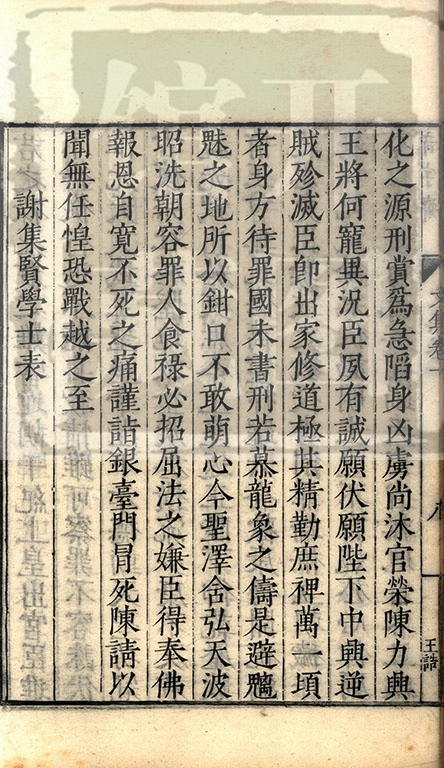 化之源刑賞爲急陷身凶虜尚沐官榮陳力興
王將何寵異況臣夙有誠願伏願陛下中興逆
賊殄滅臣卽出家修道極其精勤庶裨萬一頃
者身方待罪國未書刑若慕龍象之儔是避魑
魅之地所以鉗口不敢萌心今聖澤含弘天波
昭洗朝容罪人食祿必招屈法之嫌臣得奉佛
報恩自寬不死之痛謹詣銀臺門冒死陳請以
聞無任惶恐戰越之至
謝集賢學士表